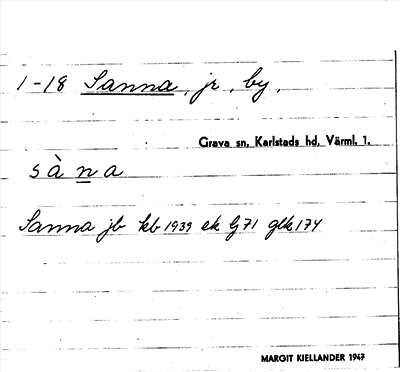 1-18 Sanna, jr, by.
Grava sn, Karlstads hd, Värml. 1.
sàna
Sanna jb kb 1939 ek Ij71 glk174
MARGIT KJELLANDER 1947